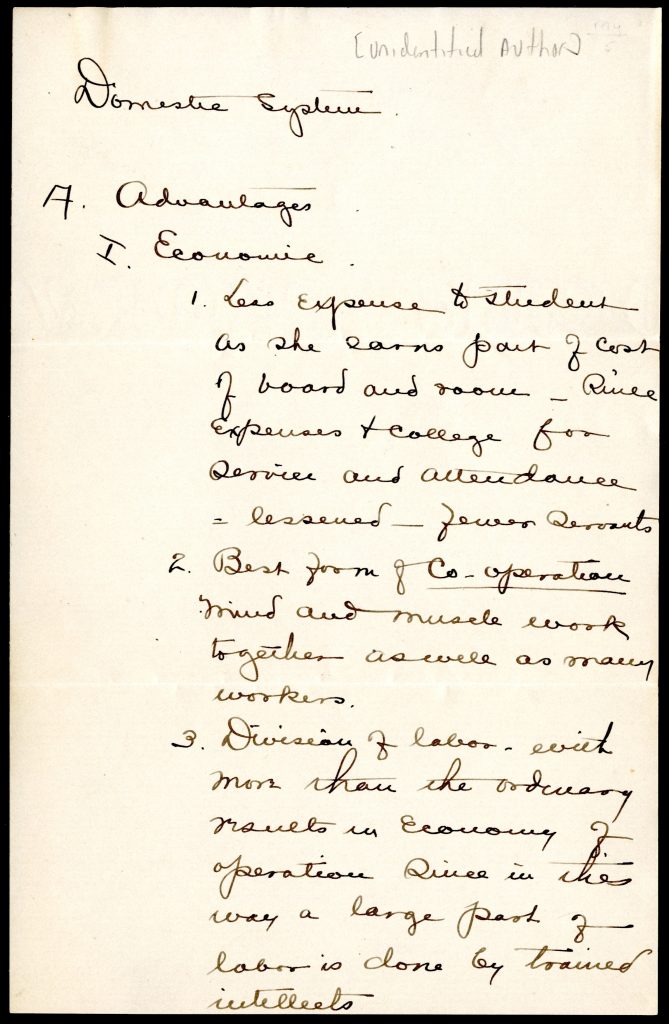 [Unidentified Author]
Domestic System.
A. Advantages
I. Economic.
1. Less expense to student
as she earns part of cost
of board and room — Since
Expenses & College for
Service and attendance
= lessened — fewer servants
2. Best form of Co-operation
Mind and muscle work
together as well as many
workers.
3. Division of labor - with
more than the ordinary
results in Economy of
operation Since in this
way a large part of
labor is done by trained
intellects